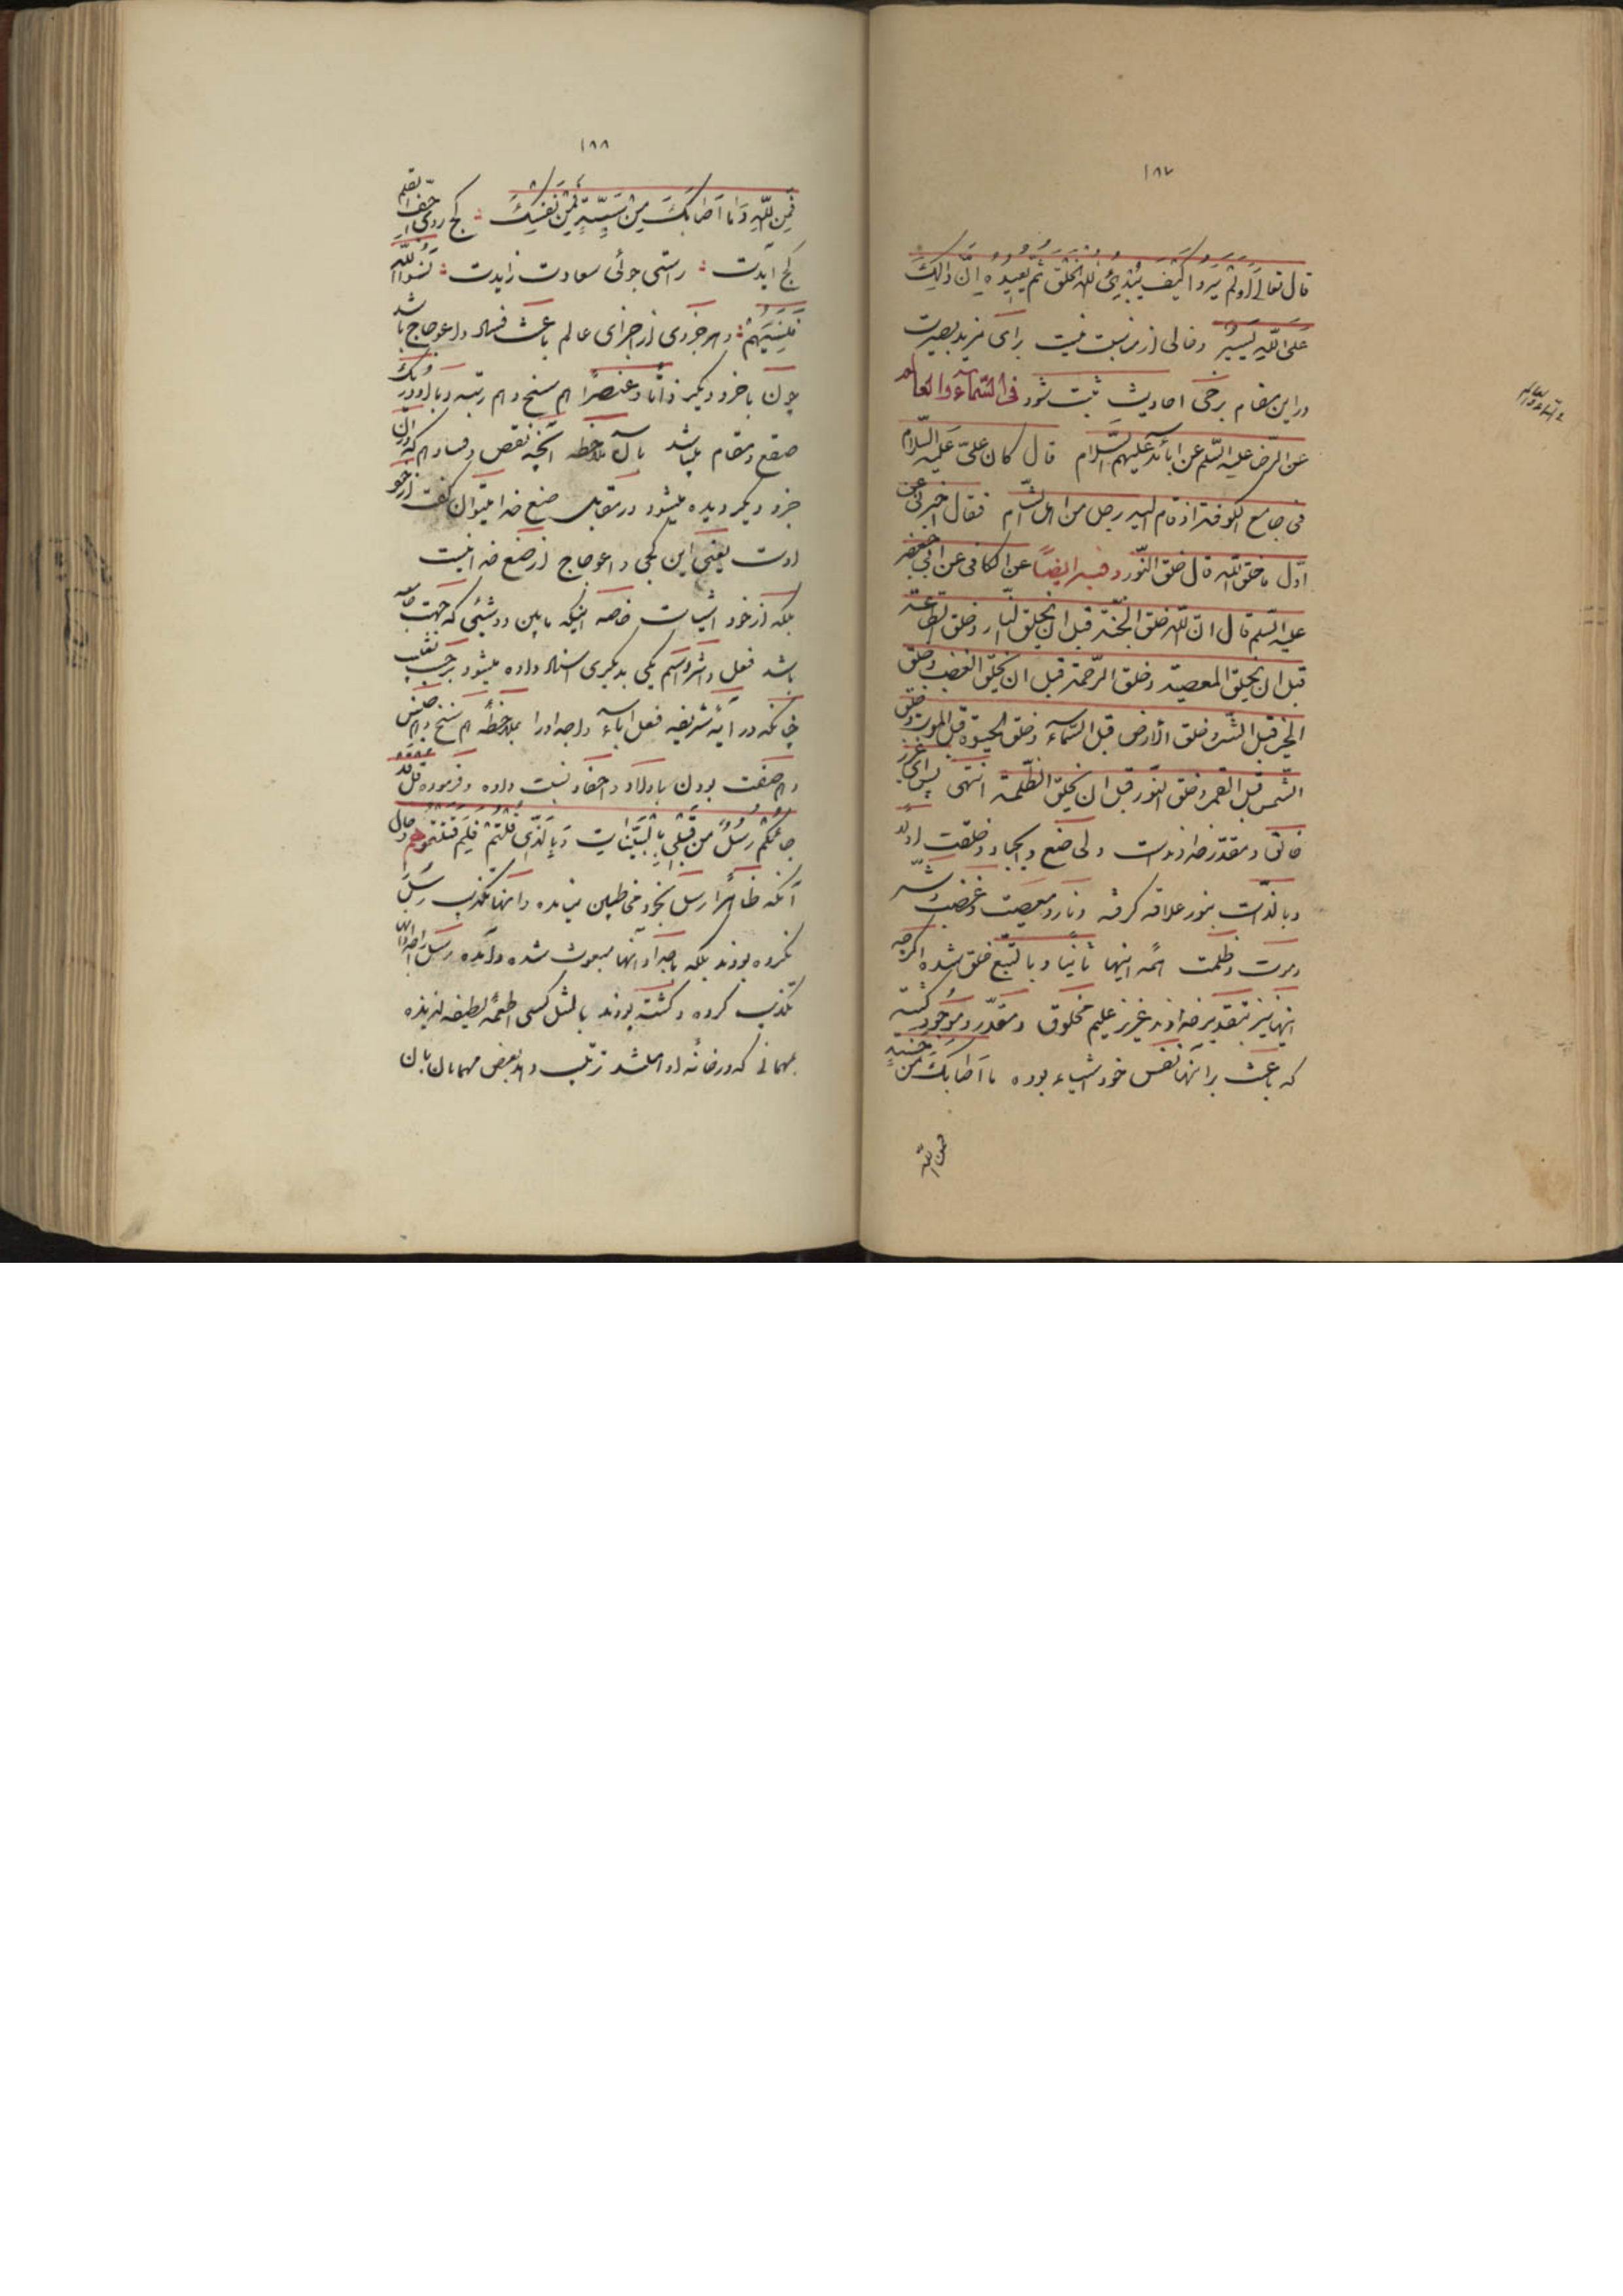 ١٨٧
قال تعالی اَوَلَمْ یَرَوْا کَیْفَ یُبْدِئُ اللهُ الْخَلْقَ ثُمَّ یُعیدُهُ اِنَّ ذلِکَ
عَلَی اللهِ یَسیرٌ و خالی از مناسبت نیست برای مزید بصیرت
در این مقام برخی احادیث ثبت شود فی السّماء والعالم
عن الرّضا علیه السّلم عن ابائه علیهم السّلام قال کان علیّ علیه السّلام
فی جامع الکوفة اذ قام الیه رجل من اهل الشّام فقال اخبرنی عن
اوّل ما خلق الله قال خلق النّور و فیه ایضاً عن الکافی عن ابی جعفر
علیه السّلم قال انّ الله خلق الجنّة قبل ان یخلق النّار و خلق الطّاعة
قبل ان یخلق المعصیة و خلق الرّحمة قبل ان یخلق الغضب و خلق
الخیر قبل الشّر و خلق الارض قبل السّماء و خلق الحیوة قبل الموت و خلق
الشّمس قبل القمر و خلق النّور قبل ان یخلق الظّلمة انتهی پس ای عزیز
خالق و مقدّر خداوند است ولی صنع و ایجاد و خلقت اولاً
و بالذّات بنور علاقه گرفته و نار و معصیت و غضب و شرّ
و موت و ظلمت همه اینها ثانیاً و بالتّبع خلق شده اگرچه
اینها نیز بتقدیر خداوند عزیز علیم مخلوق و مقدّر و موجود گشته
که باعث بر آنها نفس خود اشیاء بوده ما اَصابَکَ مِن حَسَنَةٍ
فمن الله
١٨٨
فَمِنَ اللهِ وَ ما اَصابَکَ مِنْ سَیِّئَةٍ فَمِنْ نَفْسِکَ کج روی جفّ القلم
کج آیدت راستی جوئی سعادت زایدت نَسُوا اللهَ
فَنَسِیَهُمْ و هر جزوی از اجزای عالم باعث فساد و اعوجاج باشد
چون با جزو دیگر ذاتاً و عنصراً هم سنخ و هم رتبه و با او در یک
صقع و مقام میباشد با ملاحظه آنچه نقص و فساد هم که در آن
جزو دیگر دیده میشود در مقابل صنع خدا میتوان گفت از خود
اوست یعنی این کجی و اعوجاج از صنع خدا نیست
بلکه از خود اشیاست خاصه اینکه مابین دو شیئی که جهت جامعه
باشد فعل و اثر و اسم یکی بدیگری اسناد داده میشود بر حسب تغلیب
چنانکه در آیه شریفه فعل اباء و اجداد را بملاحظه هم سنخ و هم جنس
و هم صفت بودن باولاد و احفاد نسبت داده و فرموده قل قد
جائکم رُسُلٌ من قَبْلی بِالْبَیِّنات وَ بِالَّذی قُلْتُمْ فَلِمَ قَتَلْتُمُوهُم و حال
آنکه ظاهراً رسل بخود مخاطبین نیامده و اینها تکذیب رسل
نکرده بودند بلکه باجداد آنها مبعوث شده و آمده رسل را اجداد اینها
تکذیب کرده و کشته بودند بالمثل کسی اطعمهٔ لطیفهٔ لذیذه
بمهمانی که در خانه او باشد ترتیب دهد بعض مهمانان بآن